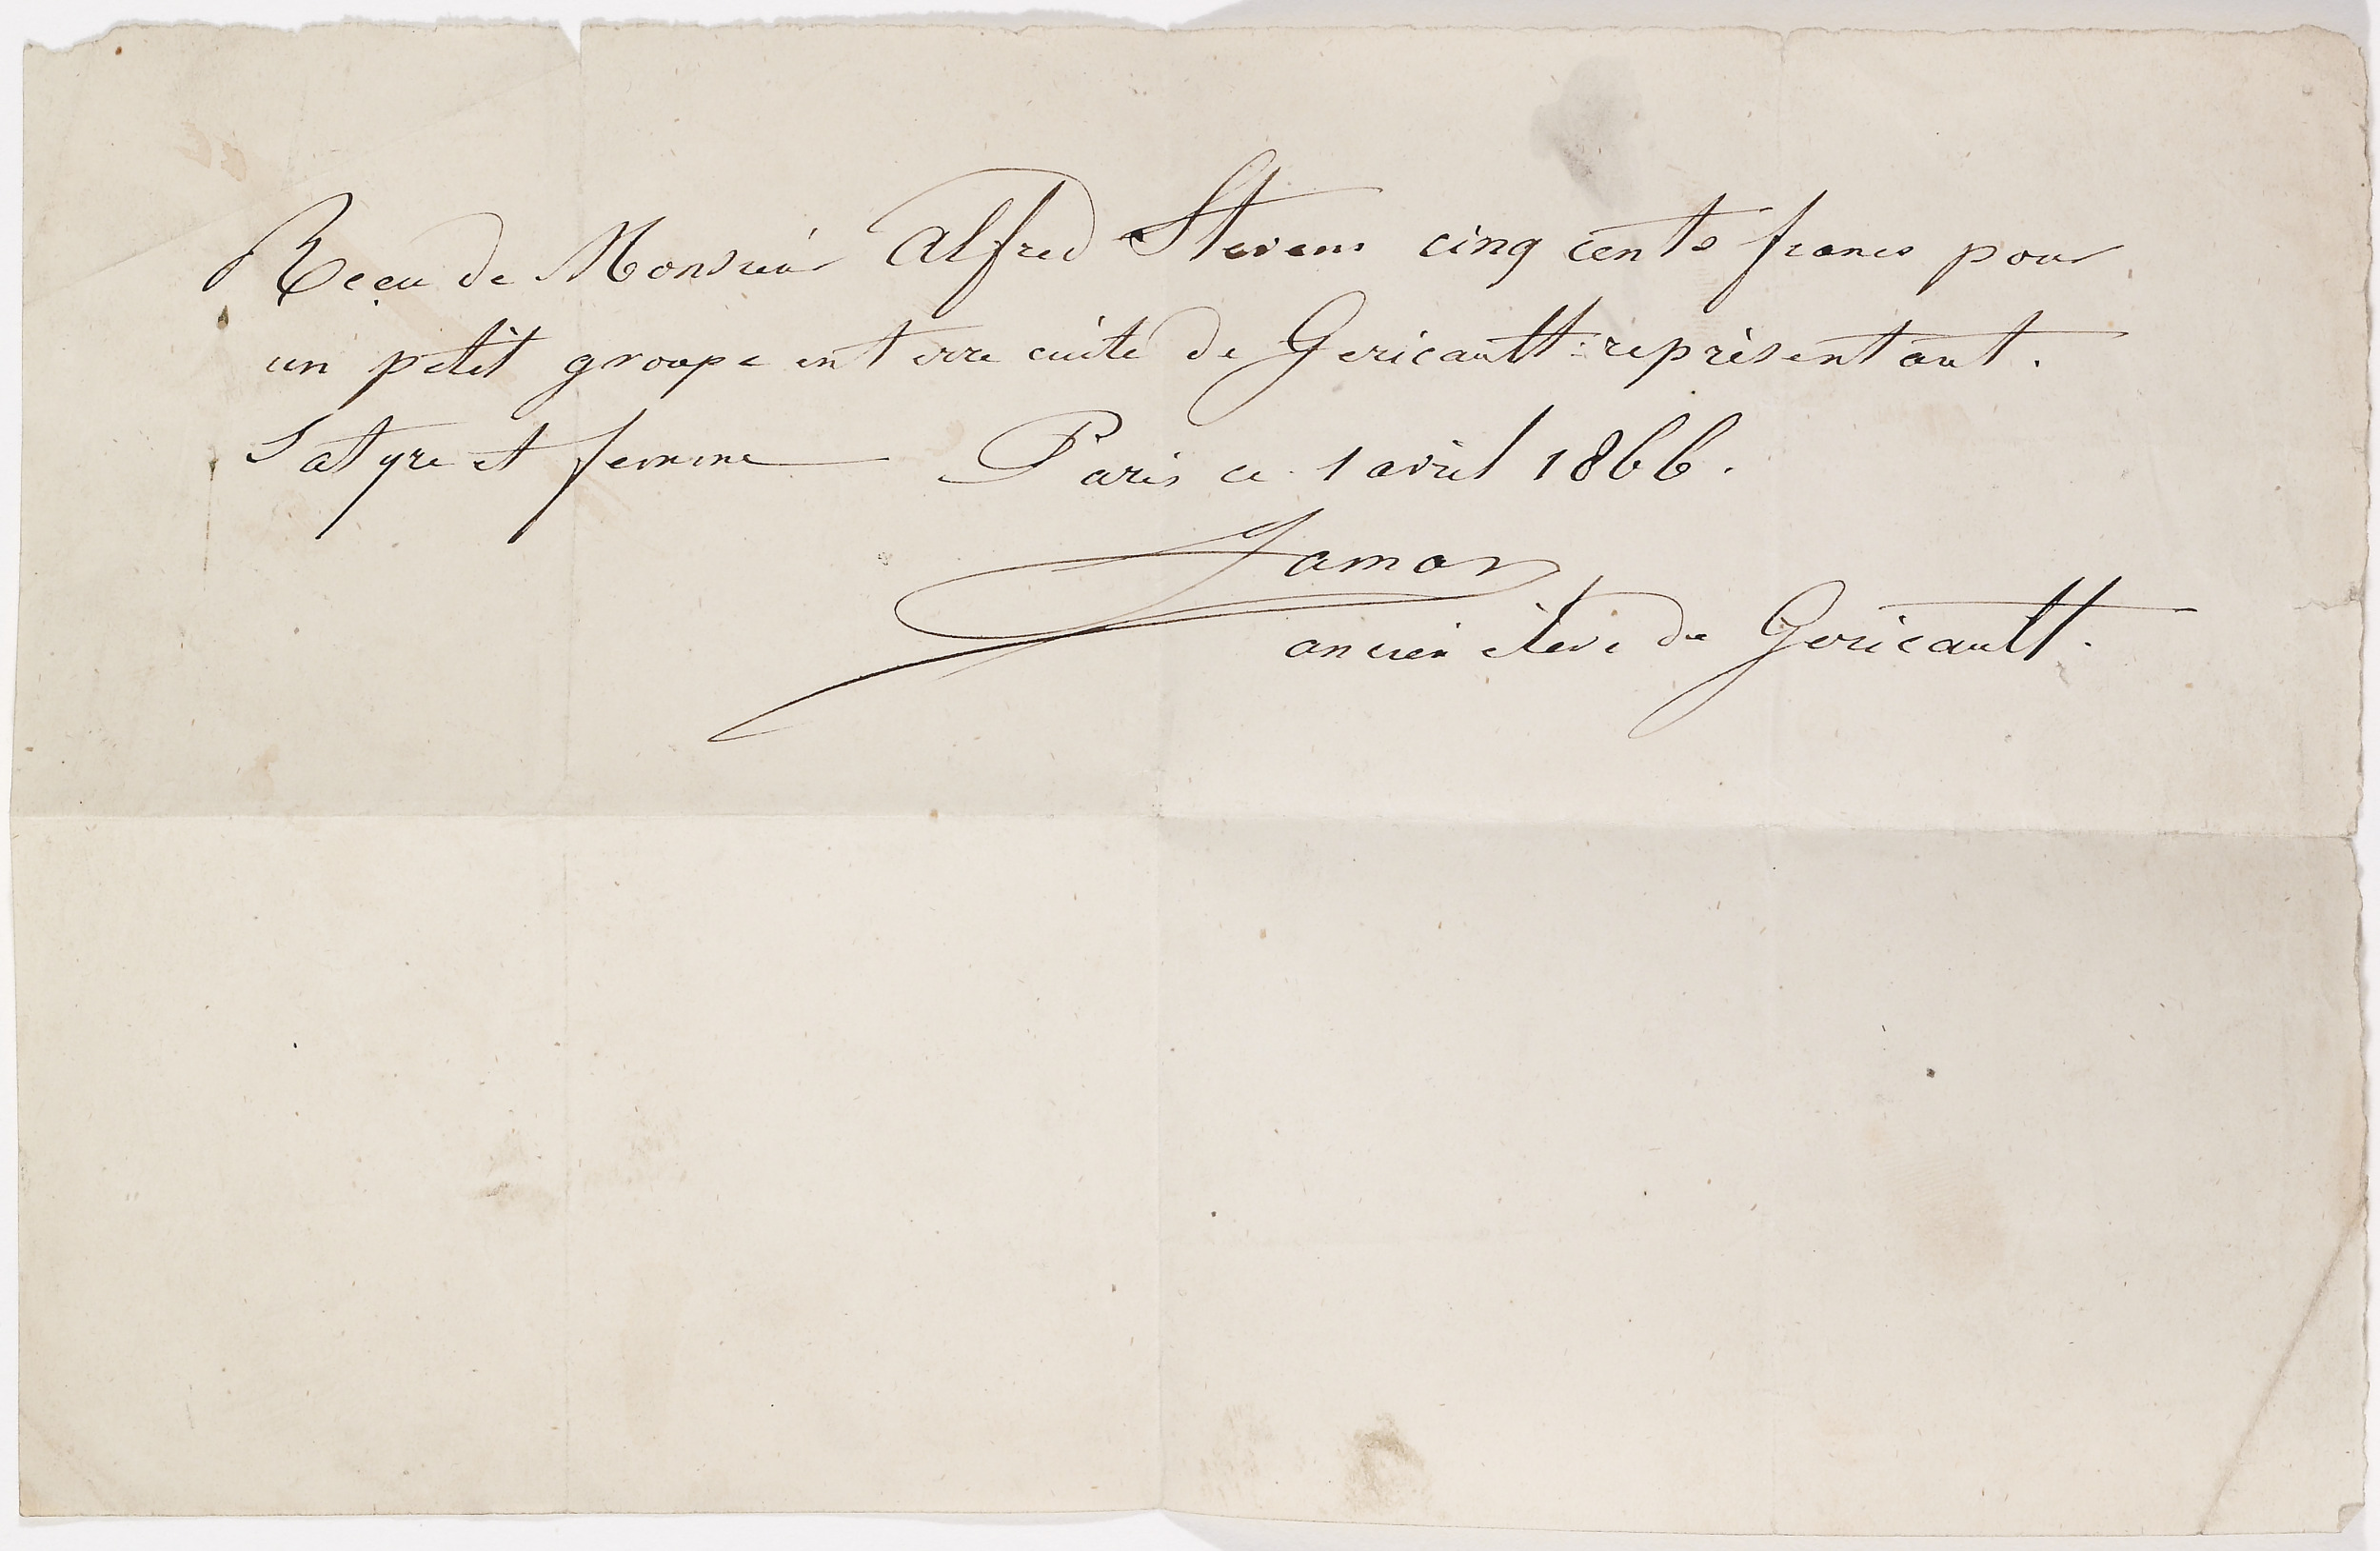 Reçu de Monsieur Alfred Stevens cinq cents francs pour
un petit groupe en terre cuite de Gericault : représentant.
Satyre et femme — Paris ce 1 avril 1866.
Jamar
ancien éleve de Gericault.